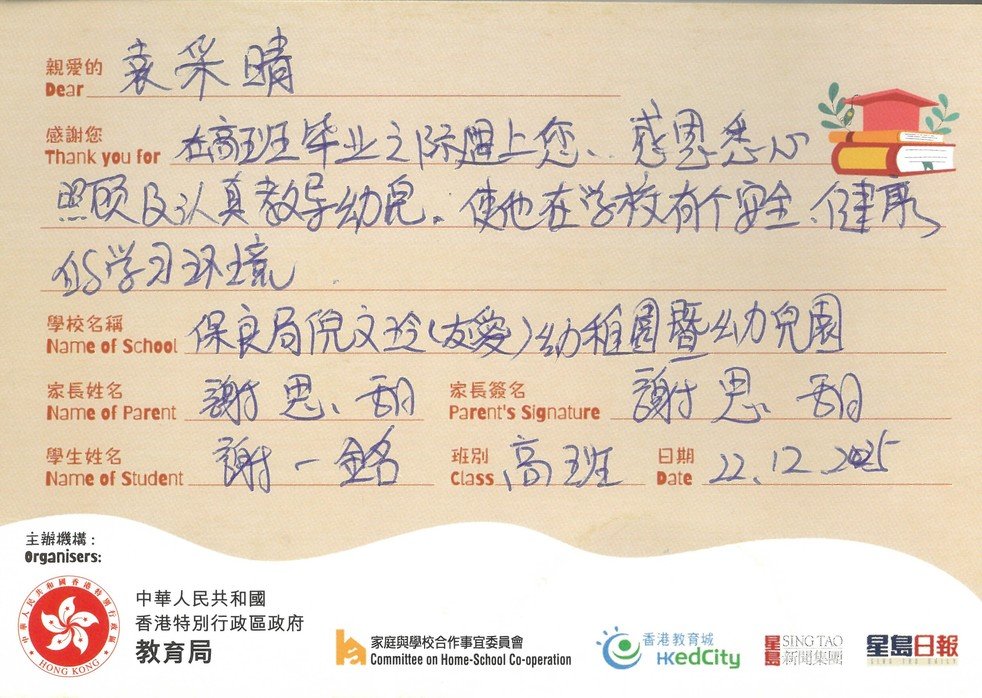 親愛的 袁采晴
Dear
感謝您 在高班毕业之际遇上您、感恩悉心
Thank you for
照顾及认真教导幼兒。使他在学校有个安全、健康
的学习环境
學校名稱 保良局倪文玲(友愛)幼稚園暨幼兒園
Name of School
家長姓名 謝思 家長簽名 謝思
Name of Parent Parent's Signature
學生姓名 謝一銘 班別 高班 日期 22.12.2025
Name of Student Class Date
主辦機構：
Organisers:
中華人民共和國香港特別行政區
HONG KONG
中華人民共和國
香港特別行政區政府
教育局
家庭與學校合作事宜委員會
Committee on Home-School Co-operation
香港教育城
HKedCity
星島 SING TAO
新聞集團
星島日報
SING TAO DAILY